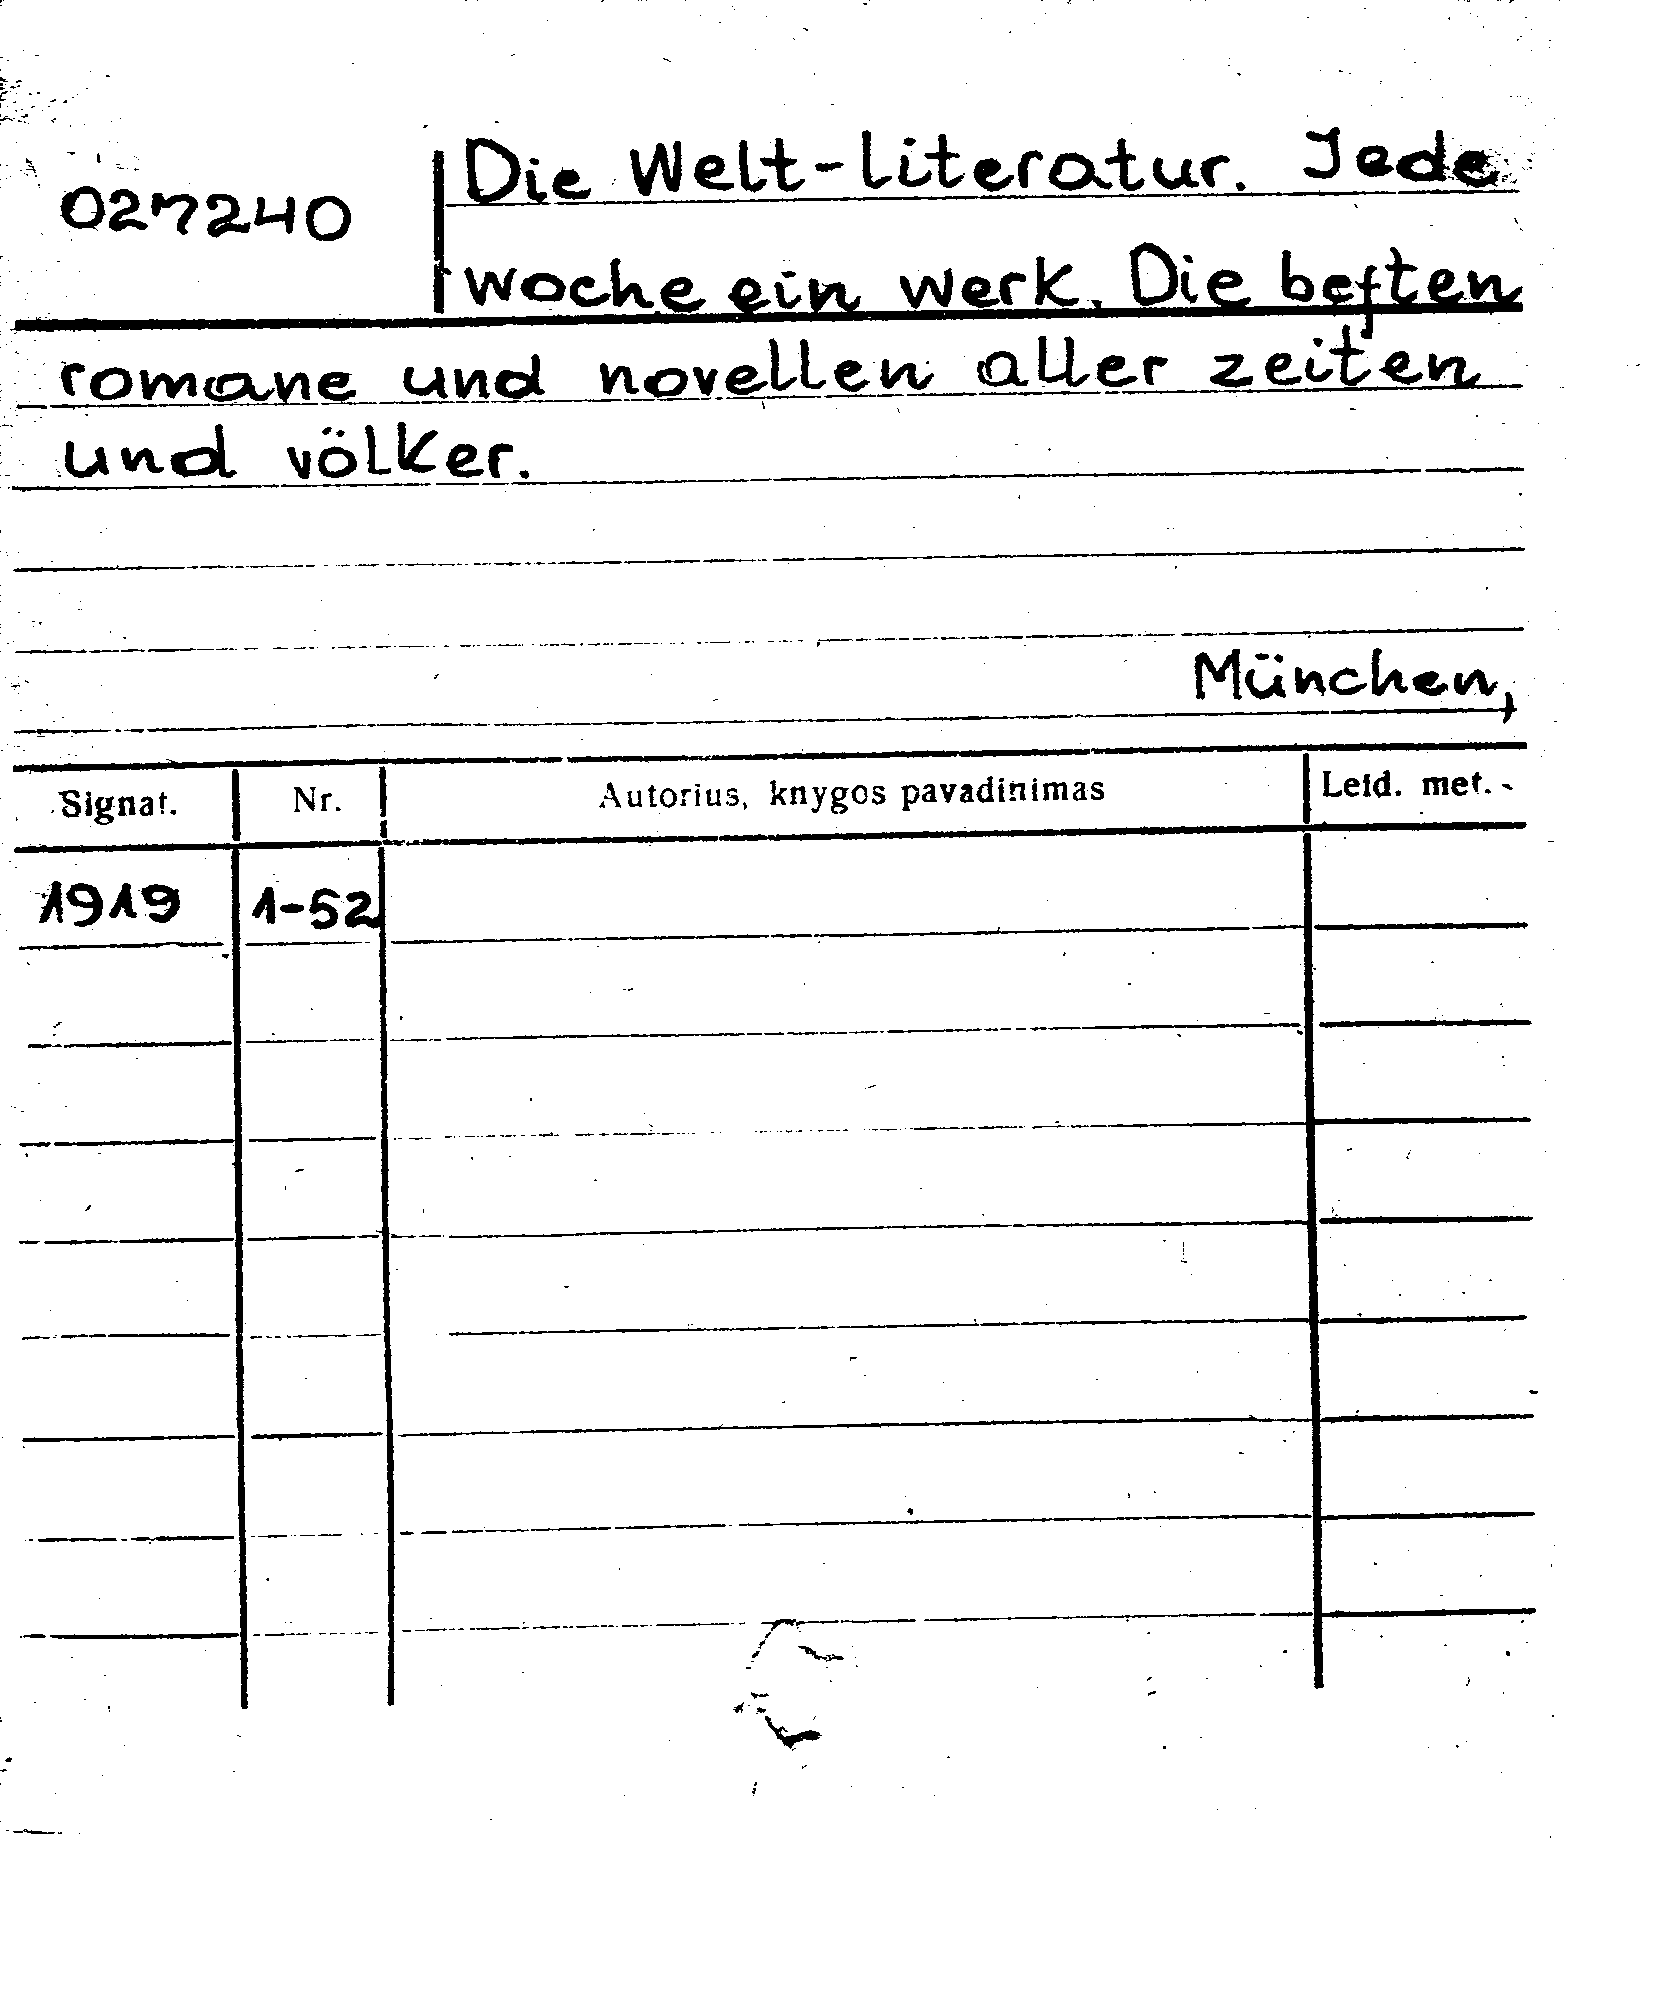 027240
Die Welt-literatur. Jede
woche ein werk. Die beſten
romane und novellen aller zeiten
und völker.
München,
Signat. Nr. Autorius, knygos pavadinimas Leid. met.
1919 1-52